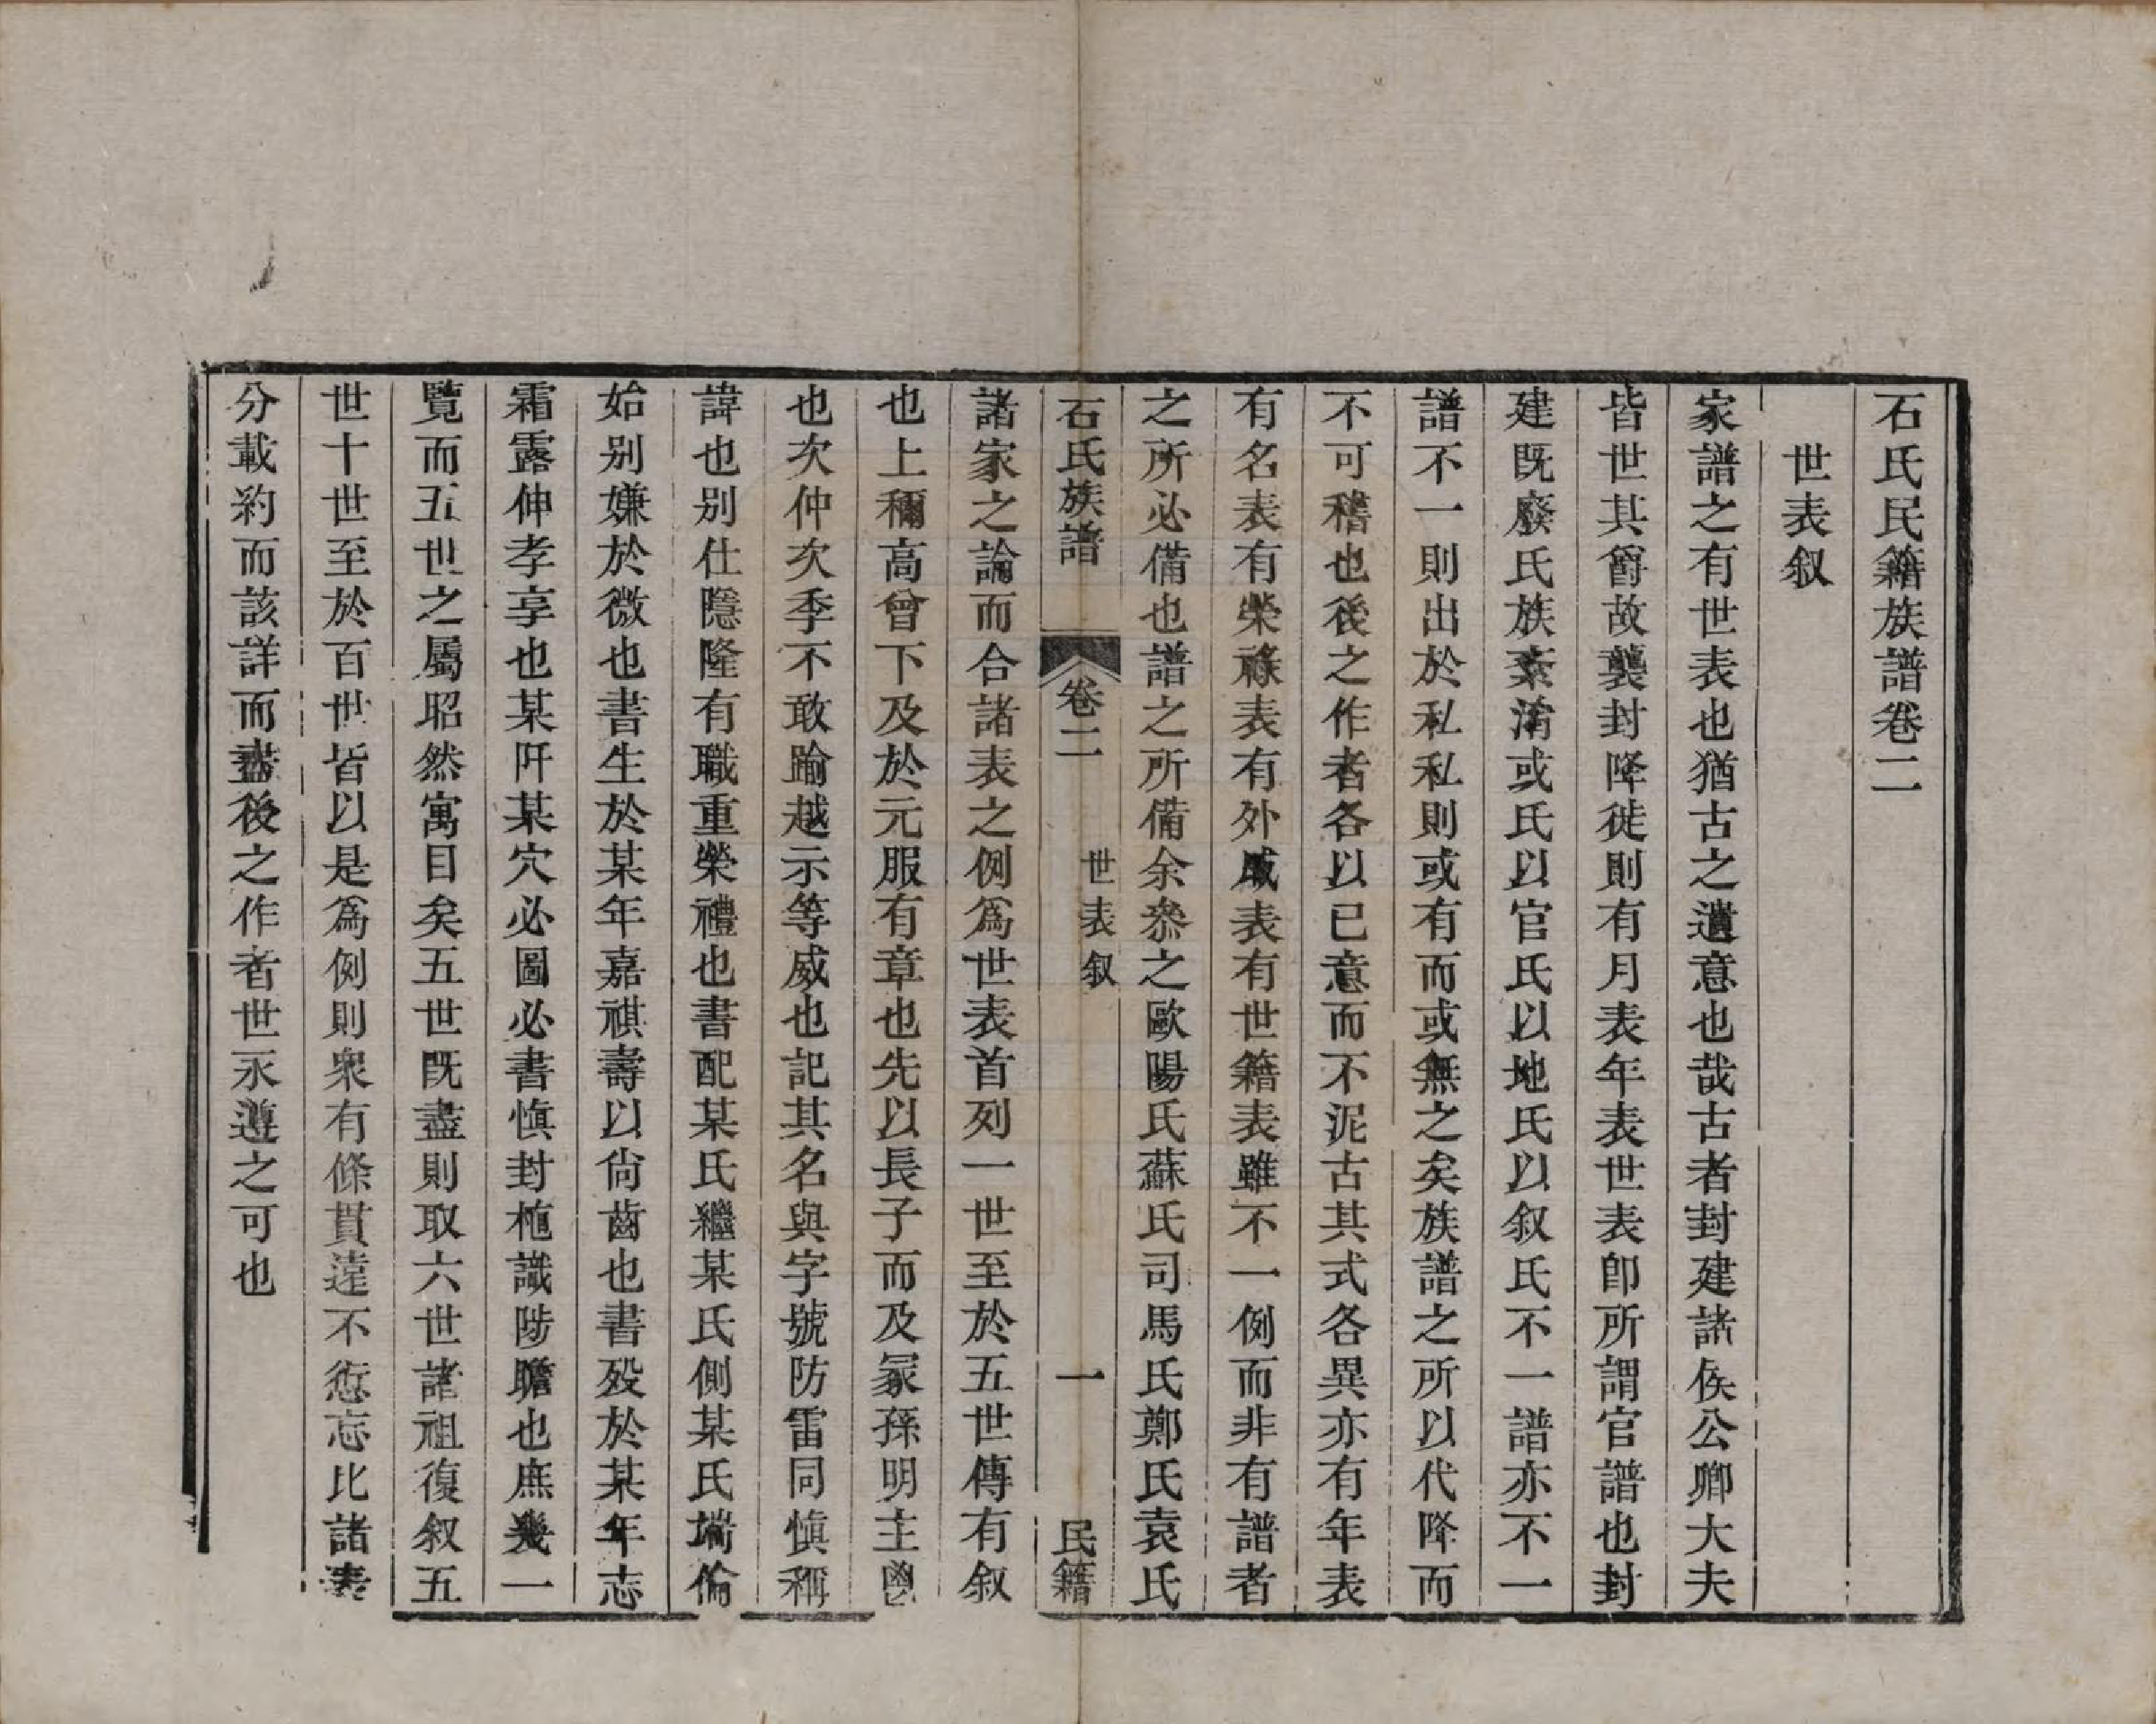 石氏民籍族譜卷二
世表叙
家譜之有世表也猶古之遺意也哉古者封建諸侯公卿大夫
皆世其爵故襲封降徙則有月表年表世表卽所謂官譜也封
建既廢氏族紊淆或氏以官氏以地氏以叙氏不一譜亦不一
譜不一則出於私私則或有而或無之矣族譜之所以代降而
不可稽也後之作者各以已意而不泥古其式各異亦有年表
有名表有榮祿表有外戚表有世籍表雖不一例而非有譜者
之所必備也譜之所備余叅之歐陽氏蘇氏司馬氏鄭氏袁氏
石氏族譜 卷二 世表叙 一 民籍
諸家之論而合諸表之例爲世表首列一世至於五世傳有叙
也上穪高曾下及於元服有章也先以長子而及冢孫明主鬯
也次仲次季不敢踰越示等威也記其名與字號防雷同慎稱
諱也别仕隱隆有職重榮禮也書配某氏繼某氏側某氏端倫
始别嫌於微也書生於某年嘉祺壽以尙齒也書殁於某年志
霜露伸孝享也某阡某穴必圖必書慎封樹識陟瞻也庶幾一
覽而五世之屬昭然寓目矣五世既盡則取六世諸祖復叙五
世十世至於百世皆以是爲例則衆有條貫遠不愆忘比諸表
分載約而該詳而盡後之作者世永遵之可也